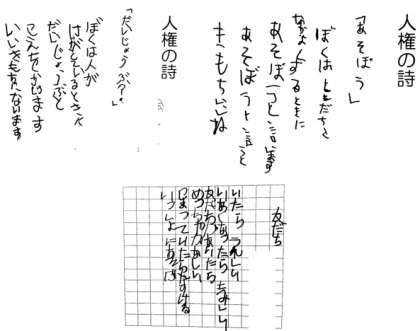 人権の詩
「あそぼう」
ぼくはともだちと
なかよくするときに
あそぼうと言います
あそぼうと言うと
きもちいいね
人権の詩
「だいじょうぶ？」
ぼくは人が
けがをしているときに
だいじょうぶと
こえをかけます
いいきもちになります
友だち
いたら うれしい
いなかったら かなしい
友だち
いっしょに